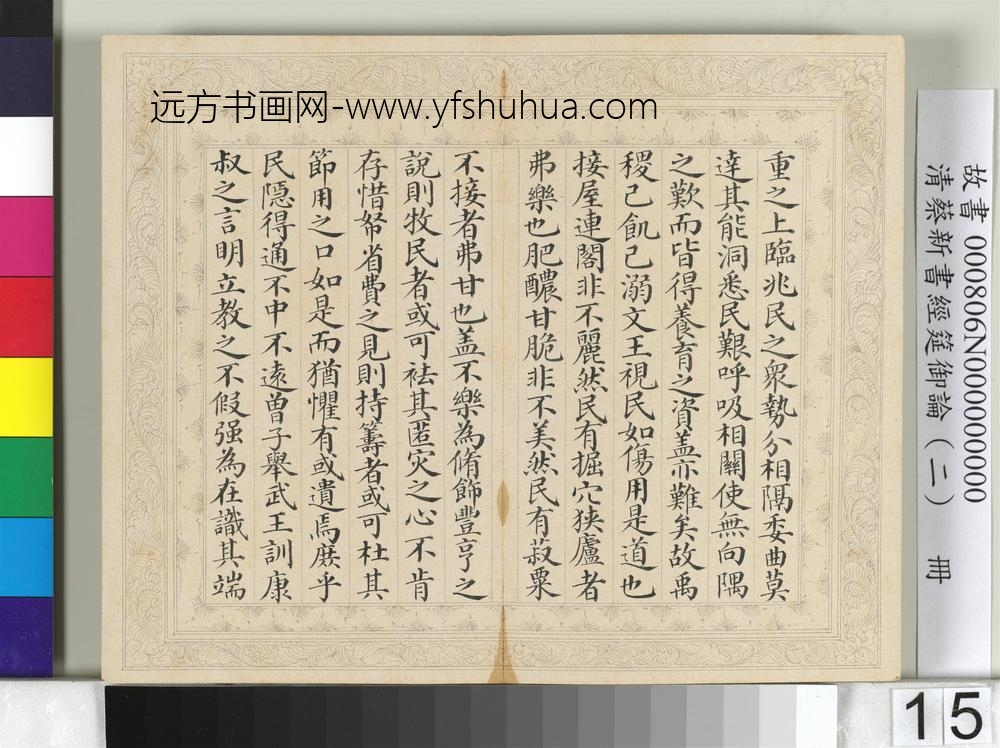 远方书画网-www.yfshuhua.com
重之上臨兆民之眾勢分相隔委曲莫
達其能洞悉民艱呼吸相關使無向隅
之歎而皆得養育之資盖亦難矣故禹
稷己飢己溺文王視民如傷用是道也
接屋連閣非不麗然民有掘穴狹廬者
弗樂也肥醲甘脆非不美然民有菽粟
不接者弗甘也盖不樂為脩飾豐亨之
說則牧民者或可袪其匿灾之心不肯
存惜帑省費之見則持籌者或可杜其
節用之口如是而猶懼有或遺焉庶乎
民隱得通不中不遠曾子舉武王訓康
叔之言明立教之不假强為在識其端
故書 000806N000000000
清蔡新書經筵御論(二) 冊
15